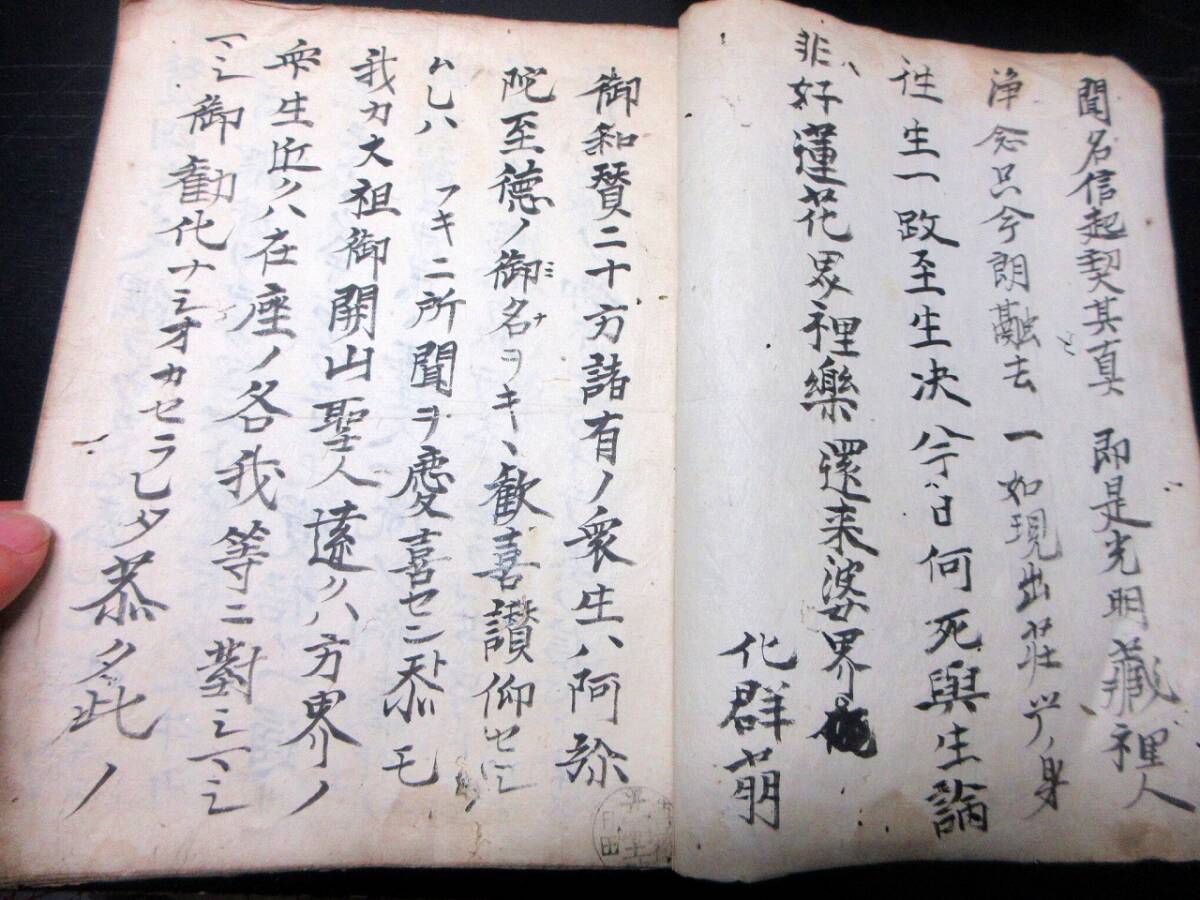 聞名信起契其真 即是光明蔵裡人
浄念只今朗融去 一如現出荘厳身
往生一政至生决 今日何死與生論
非好蓮花界裡樂 還来婆界
化群萠
御和賛ニ十方諸有ノ衆生ハ阿弥
陀至德ノ御名ヲキヽ歓喜讃仰セ
ハ フキニ所聞ヲ慶喜セン恭モ
我カ大祖御開山聖人遠クハ方界ノ
衆生近クハ在座ノ各我等ニ對シ
御勸化ナシオカセラレタ恭クタ此ノ